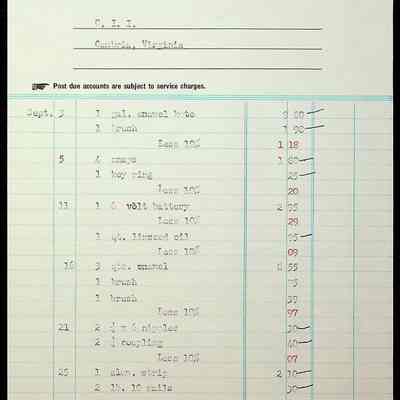 C. I. I.
Cumbria, Virginia
Post due accounts are subject to service charges.
Sept. 3 1 gal. enamel 9 90
1 brush 1 90
Less 10% 1 18
5 4 snaps 1 60
1 key ring 25
Less 10% 20
11 1 6 volt battery 2 95
Less 10% 29
1 qt. linseed oil 95
Less 10% 09
18 3 qts. enamel 8 55
1 brush
1 brush 39
Less 10% 97
21 2 nipples 30
2 coupling 40
Less 10% 07
25 1 alum. strip 2 10
2 lb. 10 nails 30